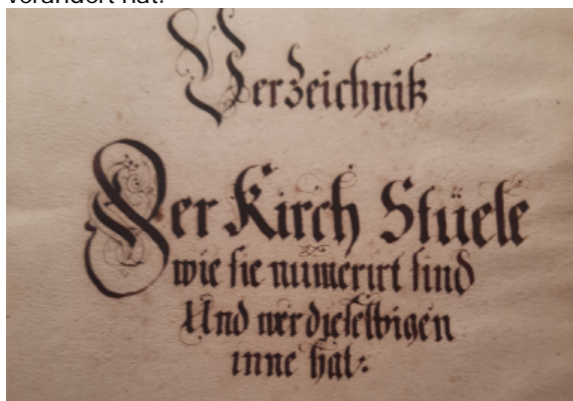 verändert hat.
Verzeichniß
Der Kirch Stüele
wie sie numerirt sind
Und wer dieselbigen
inne hat: